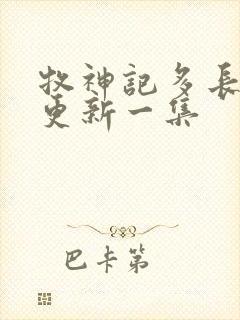 牧神記多長
更新一集
巴卡第